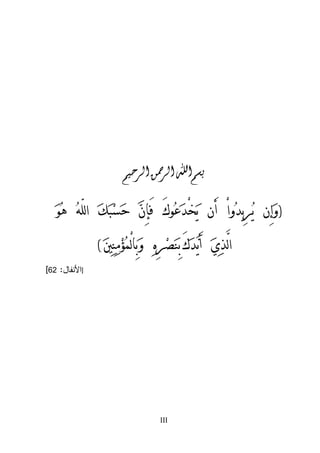 بسم الله الرحمن الرحيم
(وَإِن يُرِيدُوا۟ أَن يَخْدَعُوكَ فَإِنَّ حَسْبَكَ اللَّهُ هُوَ
الَّذِي أَيَّدَكَ بِنَصْرِهِ وَبِالْمُؤْمِنِينَ)
[الأنفال: 62]
III